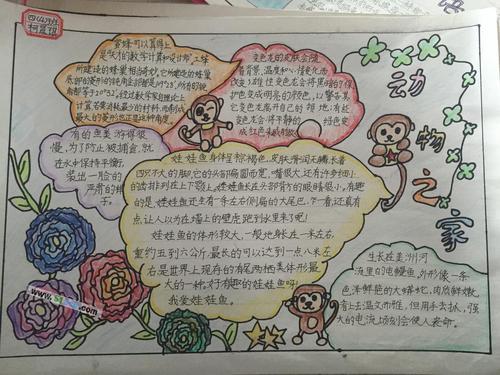 四(4)班
动
物
之
家
蜜蜂可以算得上
是"天才的数学计算和设计师",工蜂
所建造的蜂巢相当奇妙,它所建造的蜂巢
底部的菱形的钝角全部是109°28′,所有的锐
角都等于70°32′,经过数学家理论上
计算,若要消耗最少的材料,而制成
最大的菱形也正是这种角度。
变色龙的皮肤会随
着背景、温度和心情变化而
改变;雄性变色龙会将黑暗的保
护色变成明亮的颜色,以警告其
它变色龙离开自己的领地;有些
变色龙会将平静的
绿色变
成红色来威吓敌人。
有的鱼类游得很
慢,为了防止被捕食,就
在水中保持平衡,
装出一脸的
严肃的样
子。
娃娃鱼身体呈棕褐色,皮肤滑润无鳞,长着
四只不大的脚,它的头部扁圆而宽,嘴很大,还有许多细小
的齿排列在上下颚上,娃娃鱼长在头部背方的眼睛很小,有趣
的是,娃娃鱼还生有一条左右侧扁的大尾巴,乍一看,还真有
点,让人以为在墙上的壁虎跑到水里来了呢!
娃娃鱼的体形较大,一般地身长一米左右,
重约五到六公斤,最长的可以达到一点八米左
右,是世界上现存的有尾两栖类体形最
大的一种,好有趣的娃娃鱼呀!
我爱娃娃鱼。
生长在美洲河
流里的电鳗鱼,外形像一条
色泽鲜艳的大蟒蛇,肉质鲜嫩,
看上去温文而雅,但用手去抓,强
大的电流顷刻会使人丧命。